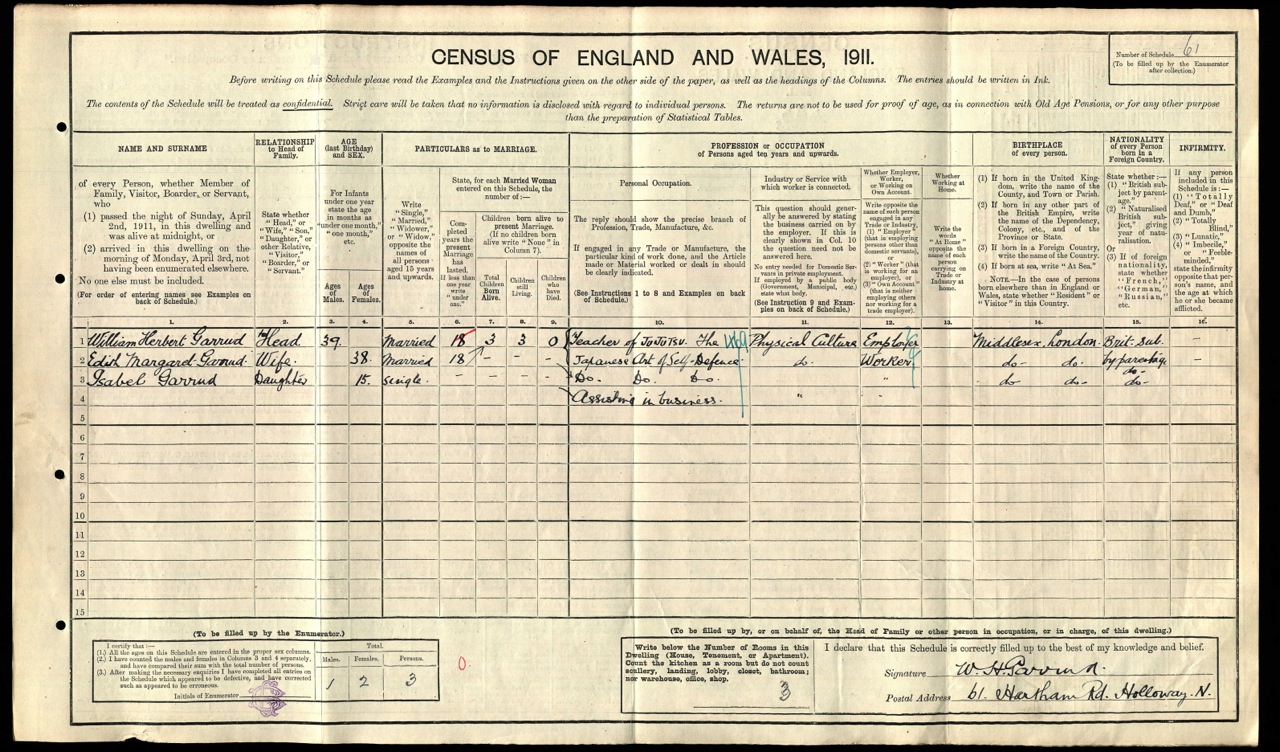 CENSUS OF ENGLAND AND WALES, 1911.
Number of Schedule 61
(To be filled up by the Enumerator
after collection.)
Before writing on this Schedule please read the Examples and the Instructions given on the other side of the paper, as well as the headings of the Columns. The entries should be written in Ink.
The contents of the Schedule will be treated as confidential. Strict care will be taken that no information is disclosed with regard to individual persons. The returns are not to be used for proof of age, as in connection with Old Age Pensions, or for any other purpose
than the preparation of Statistical Tables.
NAME AND SURNAME
of every Person, whether Member of
Family, Visitor, Boarder, or Servant,
who
(1) passed the night of Sunday, April
2nd, 1911, in this dwelling and
was alive at midnight, or
(2) arrived in this dwelling on the
morning of Monday, April 3rd, not
having been enumerated elsewhere.
No one else must be included.
(For order of entering names see Examples on
back of Schedule.)
RELATIONSHIP
to Head of
Family.
State whether
"Head," or
"Wife," "Son,"
"Daughter," or
other Relative,
"Visitor,"
"Boarder," or
"Servant."
AGE
(last Birthday)
and SEX.
For Infants
under one year
state the age
in months as
"under one month,"
"one month,"
etc.
Ages
of
Males.
Ages
of
Females.
PARTICULARS as to MARRIAGE.
Write
"Single,"
"Married,"
"Widower,"
or "Widow,"
opposite the
names of
all persons
aged 15 years
and upwards.
State, for each Married Woman
entered on this Schedule, the
number of:—
Completed
years the
present
Marriage
has
lasted.
If less than
one year
write
"under
one."
Children born alive to
present Marriage.
(If no children born
alive write "None" in
Column 7).
Total
Children
Born
Alive.
Children
still
Living.
Children
who
have
Died.
PROFESSION or OCCUPATION
of Persons aged ten years and upwards.
Personal Occupation.
The reply should show the precise branch of
Profession, Trade, Manufacture, &c.
If engaged in any Trade or Manufacture, the
particular kind of work done, and the Article
made or Material worked or dealt in should
be clearly indicated.
(See Instructions 1 to 8 and Examples on back
of Schedule.)
Industry or Service with
which worker is connected.
This question should generally
be answered by stating
the business carried on by
the employer. If this is
clearly shown in Col. 10
the question need not be
answered here.
No entry needed for Domestic Servants
in private employment.
If employed by a public body
(Government, Municipal, etc.)
state what body.
(See Instruction 9 and Examples
on back of Schedule.)
Whether Employer,
Worker,
or Working on
Own Account.
Write opposite the
name of each person
engaged in any
Trade or Industry,
(1) "Employer"
(that is employing
persons other than
domestic servants),
or
(2) "Worker" (that
is working for an
employer), or
(3) "Own Account"
(that is neither
employing others
nor working for a
trade employer).
Whether
Working at
Home.
Write the
words
"At Home"
opposite the
name of each
person
carrying on
Trade or
Industry at
home.
BIRTHPLACE
of every person.
(1) If born in the United Kingdom,
write the name of the
County, and Town or Parish.
(2) If born in any other part of
the British Empire, write
the name of the Dependency,
Colony, etc., and of the
Province or State.
(3) If born in a Foreign Country,
write the name of the Country.
(4) If born at sea, write "At Sea."
NOTE.—In the case of persons
born elsewhere than in England or
Wales, state whether "Resident" or
"Visitor" in this Country.
NATIONALITY
of every Person
born in a
Foreign Country.
State whether:—
(1) "British subject
by parentage,"
(2) "Naturalised
British
subject,"
giving
year of
naturalisation.
Or
(3) If of foreign
nationality,
state whether
"French,"
"German,"
"Russian,"
etc.
INFIRMITY.
If any person
included in this
Schedule is:—
(1) "Totally
Deaf," or "Deaf
and Dumb,"
(2) "Totally
Blind,"
(3) "Lunatic,"
(4) "Imbecile,"
or "Feeble-minded,"
state the infirmity
opposite that person's
name, and
the age at which
he or she became
afflicted.
1. 2. 3. 4. 5. 6. 7. 8. 9. 10. 11. 12. 13. 14. 15. 16.
1 William Herbert Garrud Head 39. Married 18 3 3 0 Teacher of JuJuTsu. The Physical Culture Employer Middlesex, London. Brit. Sub. –
2 Edith Margaret Garrud Wife. 38. Married 18 – – Japanese Art of Self-Defence do. Worker. do- do- by parentage. –
3 Isabel Garrud Daughter 15. Single. – – – – Do. Do. Do. " do- do- do- –
4 Assisting in business. "
5
6
7
8
9
10
11
12
13
14
15
(To be filled up by the Enumerator.)
I certify that:—
(1.) All the ages on this Schedule are entered in the proper sex columns.
(2.) I have counted the males and females in Columns 3 and 4 separately,
and have compared their sum with the total number of persons.
(3.) After making the necessary enquiries I have completed all entries on
the Schedule which appeared to be defective, and have corrected
such as appeared to be erroneous.
Initials of Enumerator
Total.
Males. Females. Persons.
1 2 3
0.
(To be filled up by, or on behalf of, the Head of Family or other person in occupation, or in charge, of this dwelling.)
Write below the Number of Rooms in this
Dwelling (House, Tenement, or Apartment).
Count the kitchen as a room but do not count
scullery, landing, lobby, closet, bathroom;
nor warehouse, office, shop.
3
I declare that this Schedule is correctly filled up to the best of my knowledge and belief.
Signature W. H. Garrud.
Postal Address 61. Hartham Rd. Holloway. N.